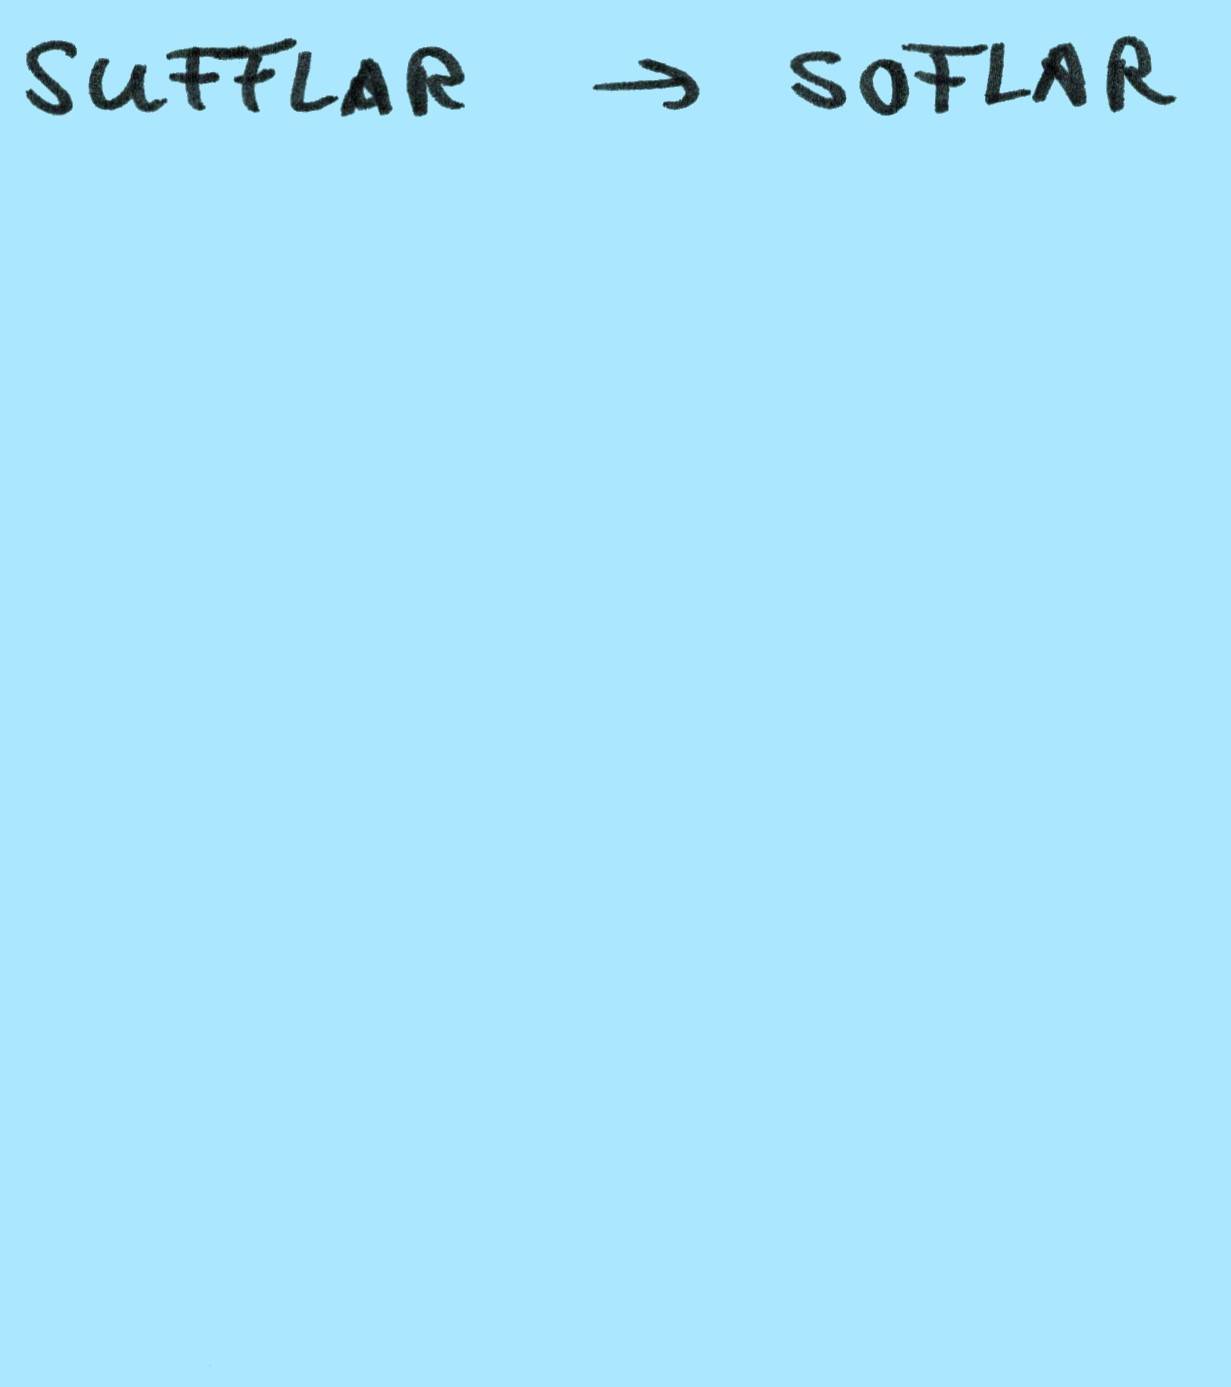 SUFFLAR → SOFLAR